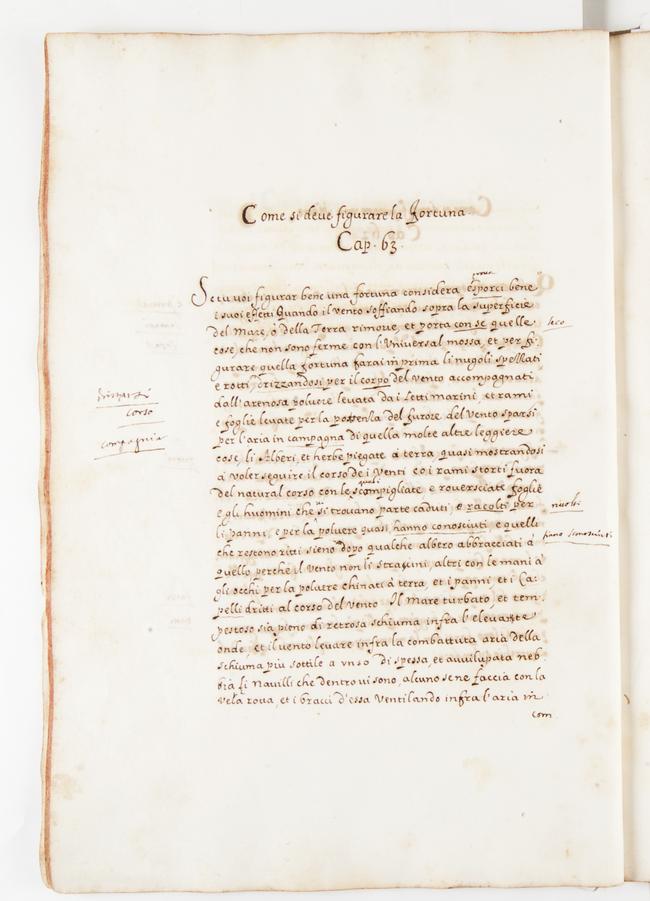 Come si deve figurare la Fortuna
Cap. 63.
Se tu voi figurar bene una fortuna considera esporci bene
i suoi effetti Quando il vento soffiando sopra la superficie
del Mare, ò della Terra rimove, et porta con se quelle
cose, che non sono ferme con l'Universal mossa, et per fi-
gurare quella fortuna farai in prima li nugoli spezzati
e rotti, drizzandosi per il corpo del vento accompagnati
dall'arenosa polvere levata da i Letti marini, et rami
e foglie levate per la potenza del furore del vento sparsi
per l'aria in campagna di quella molte altre leggiere
cose, li Alberi, et herbe piegate à terra, quasi mostrandosi
à voler seguire il corso de i Venti co i rami storti fuora
del natural corso con le scompigliate e roversciate foglie
e gli huomini che si trovano parte caduti, e racolti per
li panni, e per la polvere quasi hanno conosciuti, e quelli
che restono ritti sieno dopo qualche albero abbracciati à
quello perche il vento non li strascini, altri con le mani à
gli occhi per la polvere chinati à terra, et i panni, et i Ca-
pelli dritti al corso del vento. Il Mare turbato, et tem-
pestoso sia pieno di retrosa schiuma infra l'elevante
onde, et il vento levare infra la combattuta aria della
schiuma più sottile a uso di spessa, et avvilupata neb
bia, li Navilli che dentro vi sono, alcuno se ne faccia con la
vela rotta, et i bracci d'essa Ventilando infra l'aria in
com
corso
compagnia
nuolti